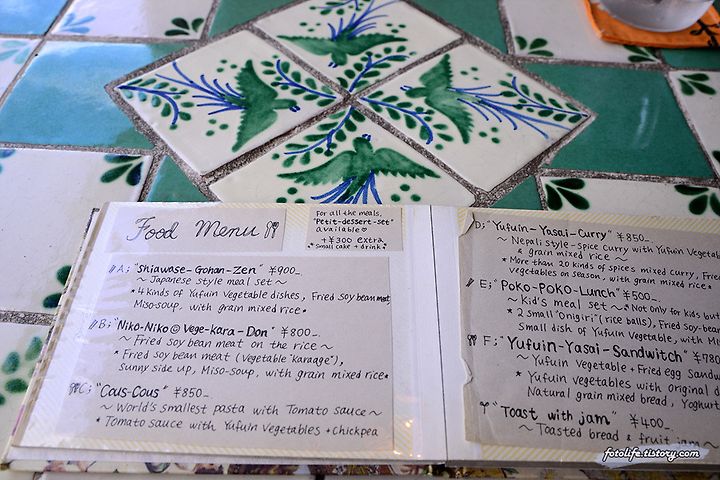 Food Menu
For all the meals,
"Petit-dessert-set"
available
+¥300 extra
* small cake + drink *
A; "Shiawase-Gohan-Zen" ¥900_
~ Japanese style meal set ~
* 4 kinds of Yufuin Vegetable dishes, Fried Soy bean meat
Miso-soup, with grain mixed rice *
B; "Niko-Niko☺Vege-kara-Don" ¥800_
~ Fried Soy bean meat on the rice ~
* Fried soy bean meat (Vegetable "karaage"),
Sunny side up, Miso-Soup, with grain mixed rice *
C; "Cous-Cous" ¥850_
~ World's smallest pasta with Tomato sauce ~
* Tomato sauce with Yufuin Vegetables + chickpea
D; "Yufuin-Yasai-Curry" ¥850_
~ Nepali style - Spice curry with Yufuin Vegetab
& grain mixed rice ~
* More than 20 kinds of spices mixed curry, Frie
vegetables on season, with grain mixed rice *
E; "Poko-Poko-Lunch" ¥500_
~ Kid's meal set ~ * Not only for kids but
* 2 small "Onigiri" (rice balls), Fried Soy-bean
Small dish of Yufuin Vegetable, with Mi
F; "Yufuin-Yasai-Sandwitch" ¥980
~ Yufuin Vegetable + Fried egg Sandw
* Yufuin vegetables with original d
Natural grain mixed bread, Yoghurt
"Toast with jam" ¥400_
~ Toasted bread & fruit jam ~
fotolife.tistory.com